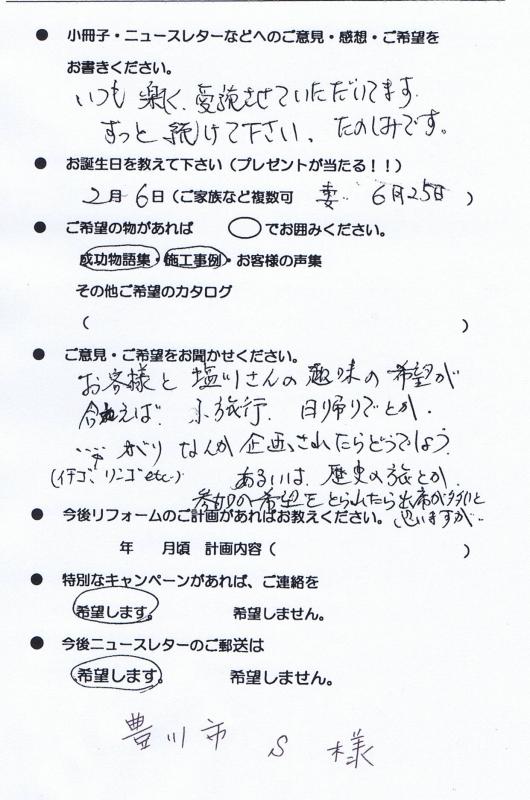 ● 小冊子・ニュースレターなどへのご意見・感想・ご希望を
お書きください。
いつも楽しく、受講させていただいてます。
ずっと続けて下さい、たのしみです。
● お誕生日を教えて下さい（プレゼントが当たる！！）
2月 6日（ご家族など複数可 妻 6月25日 ）
● ご希望の物があれば ◯でお囲みください。
成功物語集・施工事例・お客様の声集
その他ご希望のカタログ
（ ）
● ご意見・ご希望をお聞かせください。
お客様と塩川さんの趣味の希望が
合えば、小旅行、日帰りでとか、
……がりなんか企画されたらどうでしょう？
(イチゴ、リンゴetc…) あるいは、歴史の旅とか、
参加の希望をとられたら出席が多いと
思いますが…
● 今後リフォームのご計画があればお教えください。
年 月頃 計画内容（ ）
● 特別なキャンペーンがあれば、ご連絡を
希望します。 希望しません。
● 今後ニュースレターのご郵送は
希望します。 希望しません。
豊川市 S 様